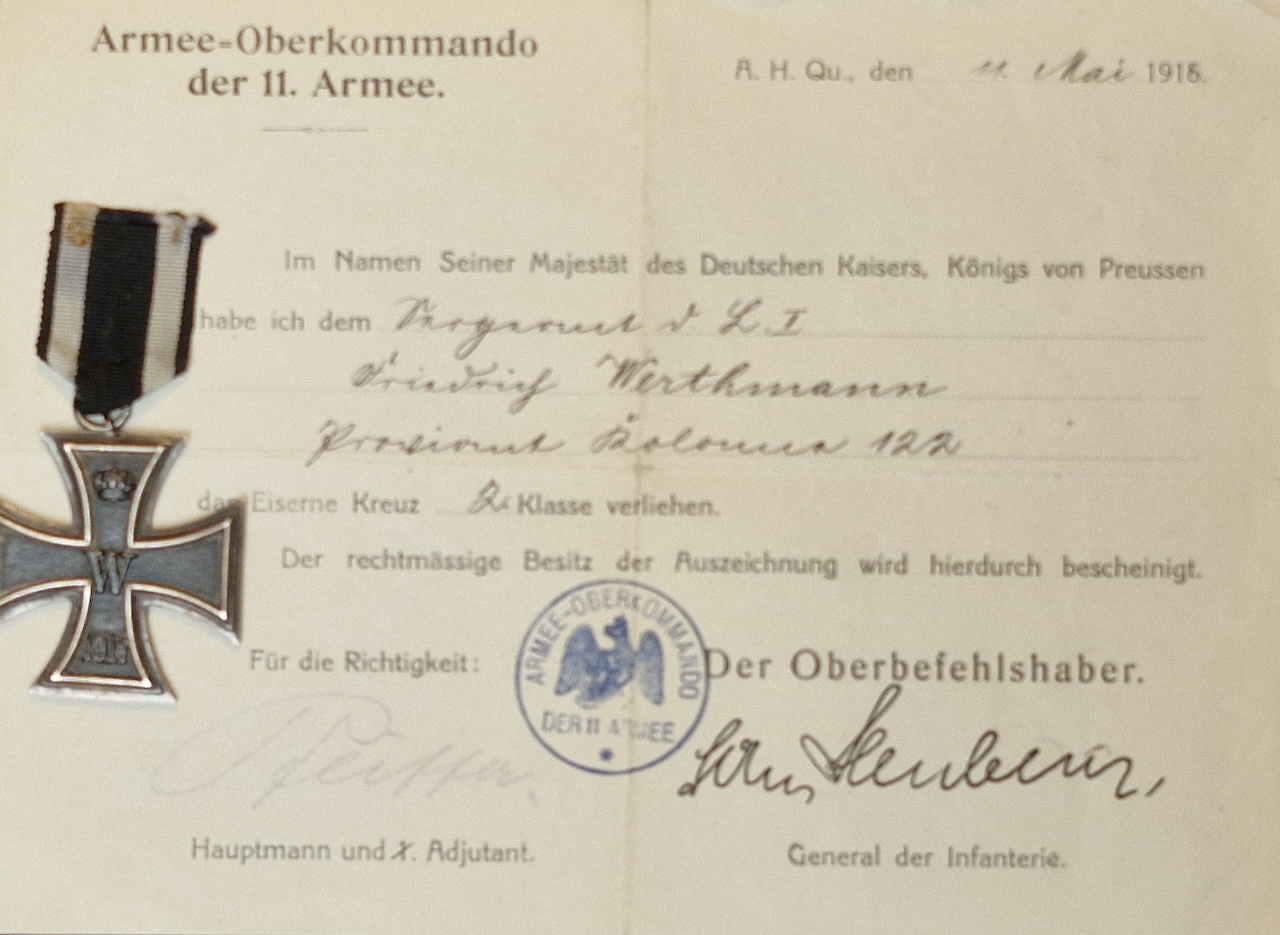 Armee=Oberkommando
der 11. Armee.
A. H. Qu., den 11. Mai 1918.
Im Namen Seiner Majestät des Deutschen Kaisers, Königs von Preussen
habe ich dem Sergeant d. L. I
Friedrich Werthmann
Proviant Kolonne 122
das Eiserne Kreuz 2. Klasse verliehen.
Der rechtmässige Besitz der Auszeichnung wird hierdurch bescheinigt.
Für die Richtigkeit:
ARMEE-OBERKOMMANDO
DER 11 ARMEE
Der Oberbefehlshaber.
Pfeiffer.
Hauptmann und X. Adjutant.
General der Infanterie.
W
1914